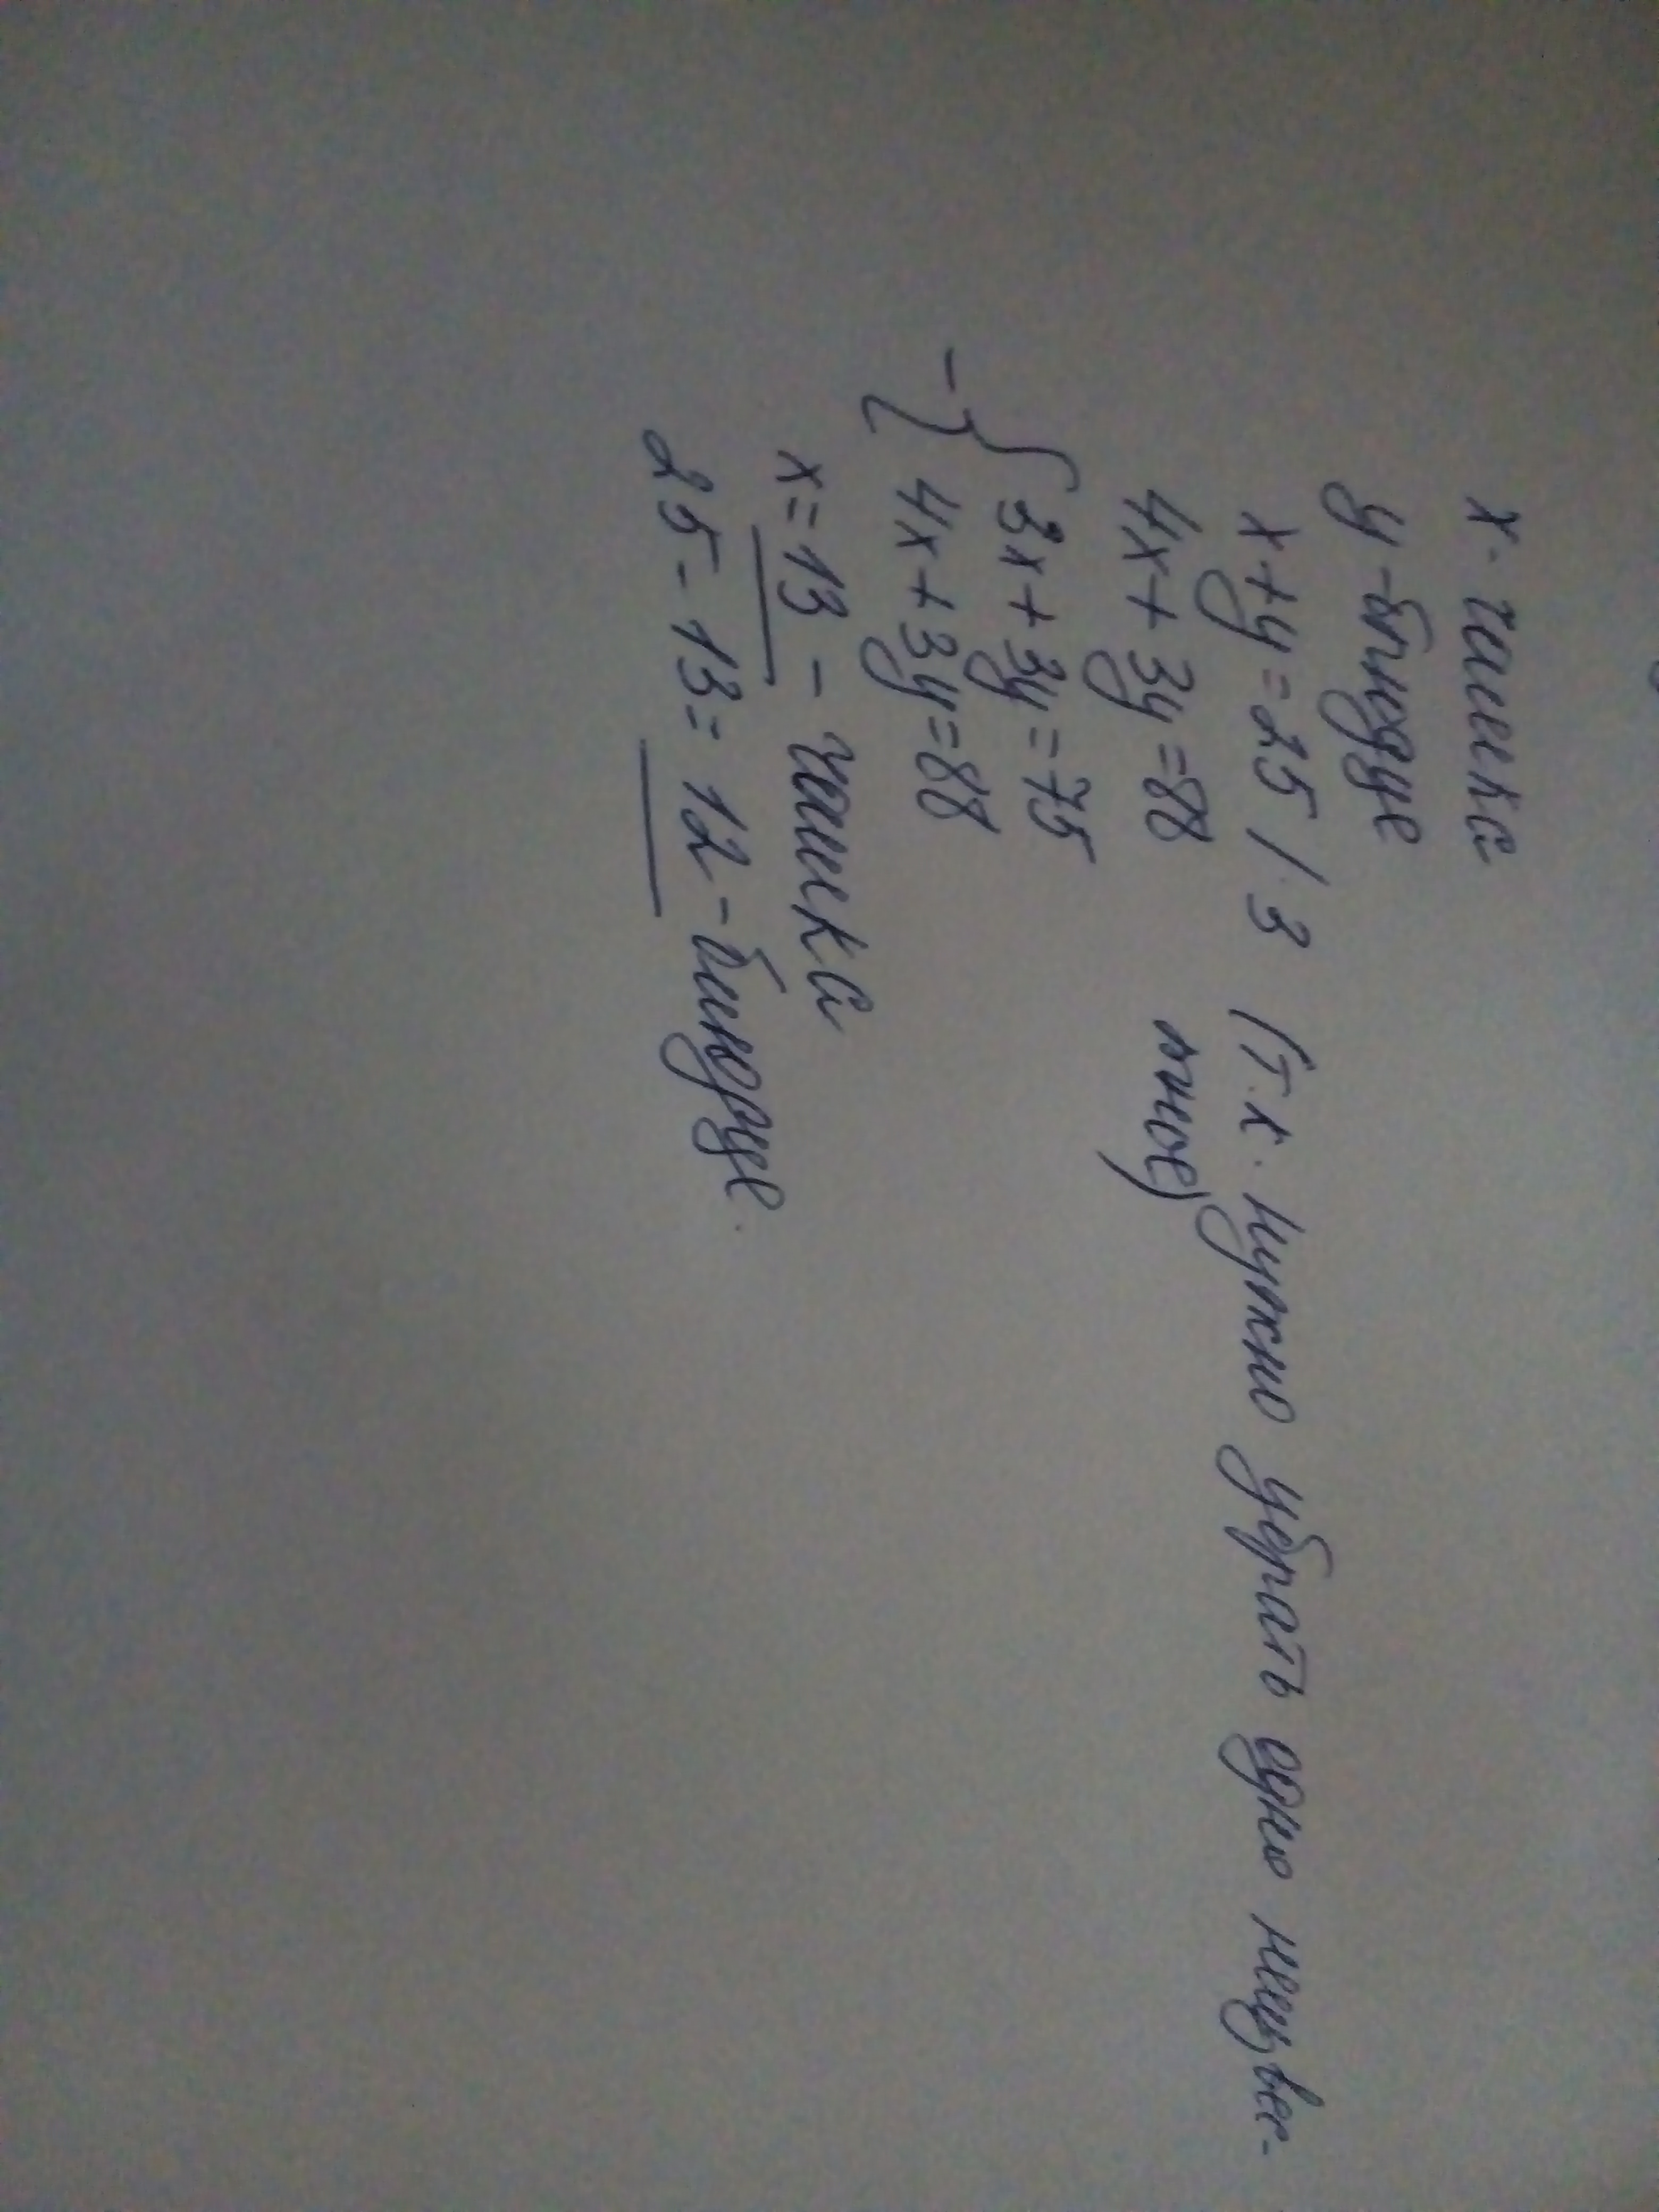 x - чашка
y - блюдце
x + y = 25 / · 3 (т.к. нужно убрать одно неизвес-
тное)
4x + 3y = 88
3x + 3y = 75
4x + 3y = 88
x = 13 - чашка
25 - 13 = 12 - блюдце.